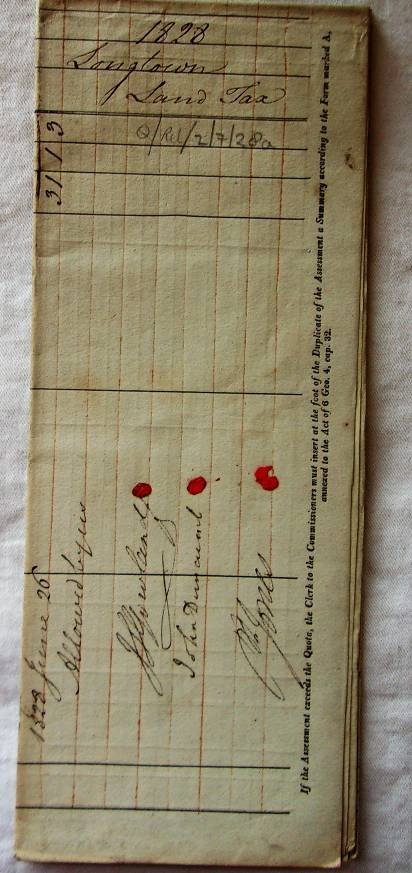 1828
Longtown
Land Tax
Q/Rel/2/7/28a
31 1 3
1828 June 26
Allowed by me
John
If the Assessment exceeds the Quota, the Clerk to the Commissioners must insert at the foot of the Duplicate of the Assessment a Summary according to the Form marked A,
annexed to the Act of 6 Geo. 4, cap. 32.